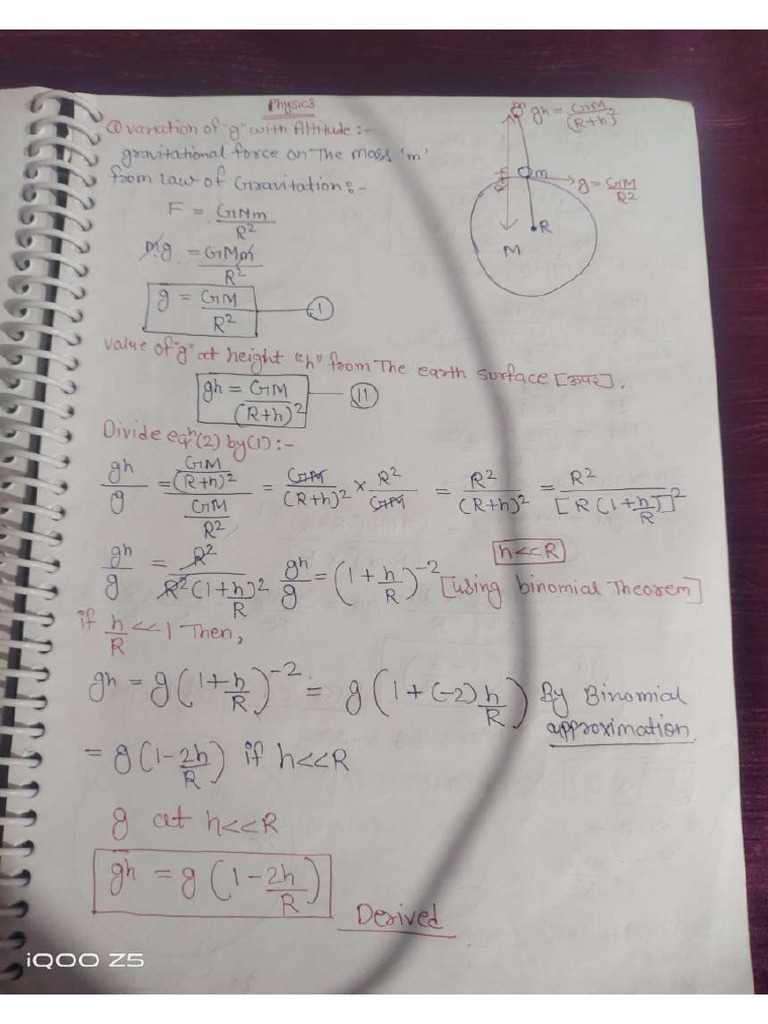 Physics
① variation of "g" with Altitude :-
gravitational force on The mass 'm'
from Law of Gravitation :-
F = GMm/R²
mg = GMm/R²
g = GM/R² — ①
value of "g" at height "h" from The earth surface [ऊपर].
gh = GM/(R+h)² — ⑪
Divide eqⁿ(2) by (1) :-
gh/g = (GM/(R+h)²)/(GM/R²) = GM/(R+h)² × R²/GM = R²/(R+h)² = R²/[R(1+h/R)]²
h<<R
gh/g = R²/R²(1+h/R)² gh/g = (1+h/R)⁻² [using binomial Theorem]
if h/R <<1 Then,
gh = g(1+h/R)⁻² = g(1+(-2)h/R) By Binomial
approximation
= g(1-2h/R) if h<<R
g at h<<R
gh = g(1-2h/R)
Derived
m gh = GM/(R+h)²
m g = GM/R²
R
M
iQOO Z5